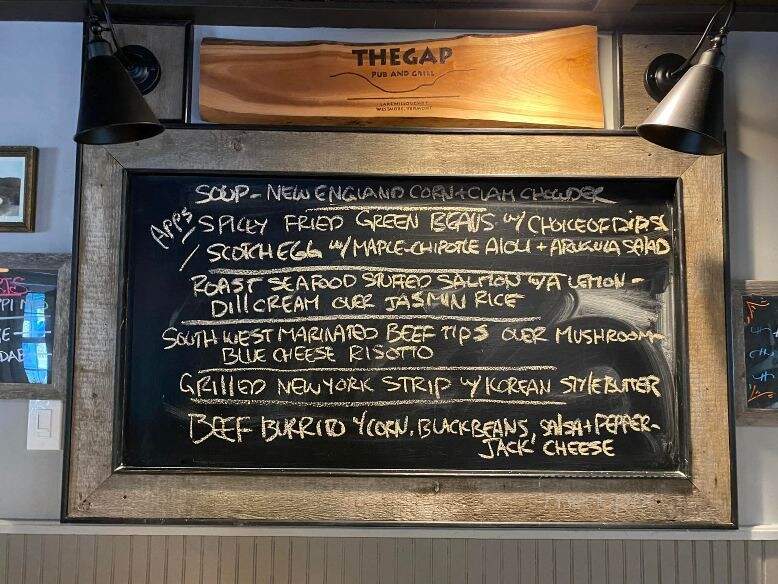 THE GAP
PUB AND GRILL
WESTMORE, VERMONT
SOUP - NEW ENGLAND CORN + CLAM CHOWDER
APPS
SPICEY FRIED GREEN BEANS W/ CHOICE OF DIPS
SCOTCH EGG W/ MAPLE-CHIPOTLE AIOLI + ARUGULA SALAD
ROAST SEAFOOD STUFFED SALMON W/A LEMON-
DILL CREAM OVER JASMIN RICE
SOUTH WEST MARINATED BEEF TIPS OVER MUSHROOM-
BLUE CHEESE RISOTTO
GRILLED NEW YORK STRIP W/ KOREAN STYLE BUTTER
BEEF BURRITO W/CORN, BLACK BEANS, SALSA + PEPPER-
JACK CHEESE